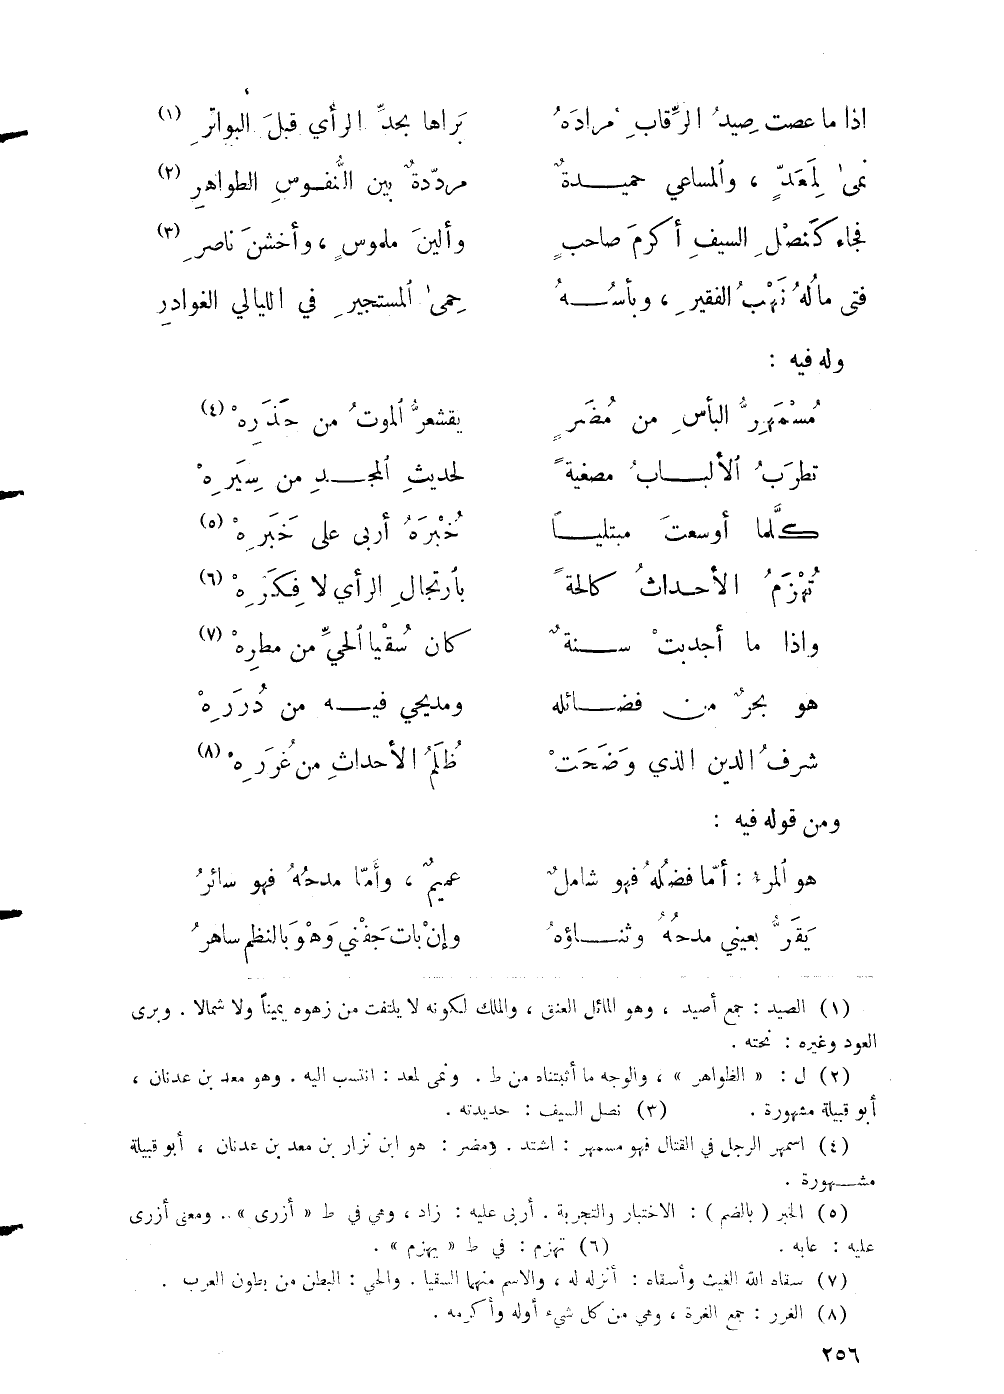 اذا ما عصت صِيدُ الرِّقابِ مُرادَهُ بَراها بحدِّ الرأي قبلَ البواترِ (١)
نمىٰ لِمَعَدٍّ ، والمساعي حميـــدةٌ مردّدةٌ بين النُّفـوسِ الطواهرِ (٢)
فجاء كَنصْلِ السيفِ أكرمَ صاحبٍ وألينَ ملموسٍ ، وأخشنَ ناصرِ (٣)
فتى مالُهُ نَهْبُ الفقيرِ ، وبأسُـــهُ حِمىٰ المستجيرِ في الليالي الغوادرِ
وله فيه :
مُسْمَهِرُّ البأسِ من مُضَرٍ يقشعرُّ الموتُ من حَذَرِهْ (٤)
تطرَبُ الألبـــابُ مصغيةً لحديثِ المجـــدِ من سِيَرِهْ
كلَّما أوسعتَ مبتليـــاً خُبْرَهُ أربى على خَبَرِهْ (٥)
تُهْزَمُ الأحـداثُ كالحةً بارتجالِ الرأي لا فِكَرِهْ (٦)
واذا ما أجدبتْ ســـنةٌ كان سُقْيا الحيِّ من مطرِهْ (٧)
هو بحرٌ من فضـــائله ومديحي فيـــه من دُرَرِهْ
شرفُ الدين الذي وَضَحَتْ ظُلَمُ الأحداثِ من غُرَرِهْ (٨)
ومن قوله فيه :
هو المرء : أمّا فضلُهُ فهو شاملٌ عميمٌ ، وأمّا مدحُهُ فهو سائرُ
يَقَرُّ بعيني مدحُهُ وثنـــاؤهُ وإنْ بات جَفْني وَهْوَ بالنظم ساهرُ
(١) الصيد : جمع أصيد ، وهو المائل العنق ، والملك لكونه لا يلتفت من زهوه يميناً ولا شمالا . وبرى
العود وغيره : نحته .
(٢) ل : « الظواهر » ، والوجه ما أثبتناه من ط . ونمى لمعد : انتسب اليه . وهو معد بن عدنان ،
أبو قبيلة مشهورة . (٣) نصل السيف : حديدته .
(٤) اسمهر الرجل في القتال فهو مسمهر : اشتد . ومضر : هو ابن نزار بن معد بن عدنان ، أبو قبيلة
مشـــهورة .
(٥) الخبر ( بالضم ) : الاختبار والتجربة . أربى عليه : زاد ، وهي في ط « أزرى » .. ومعنى أزرى
عليه : عابه . (٦) تهزم : في ط « يهزم » .
(٧) سقاه الله الغيث وأسقاه : أنزله له ، والاسم منهما السقيا . والحي : البطن من بطون العرب .
(٨) الغرر : جمع الغرة ، وهي من كل شيء أوله وأكرمه .
٢٥٦